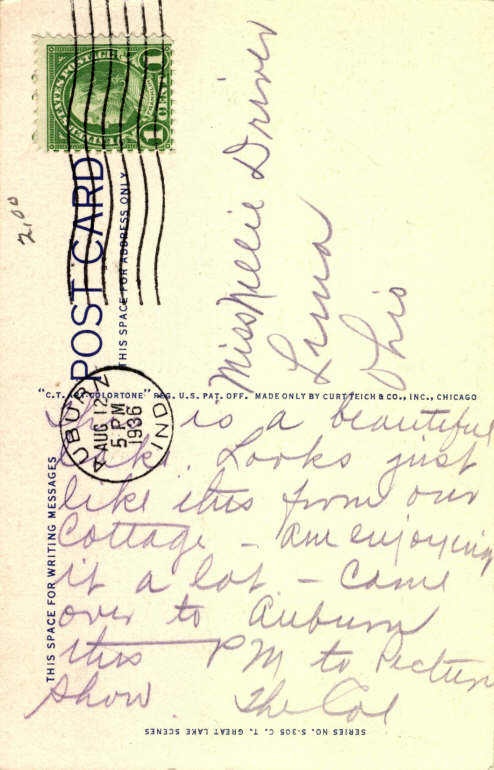 UNITED STATES POSTAGE
1 CENT 1
POST CARD
THIS SPACE FOR ADDRESS ONLY
2,00
Miss Nellie Driver
Lima
Ohio
AUBURN
AUG 12
5 PM
1936
IND
"C.T. ART-COLORTONE" REG. U.S. PAT. OFF. MADE ONLY BY CURT TEICH & CO., INC., CHICAGO
THIS SPACE FOR WRITING MESSAGES
This is a beautiful
lake. Looks just
like this from our
Cottage – am enjoying
it a lot – Came
over to Auburn
this PM to Picture
Show The Col
SERIES NO. S-305 C. T. GREAT LAKE SCENES